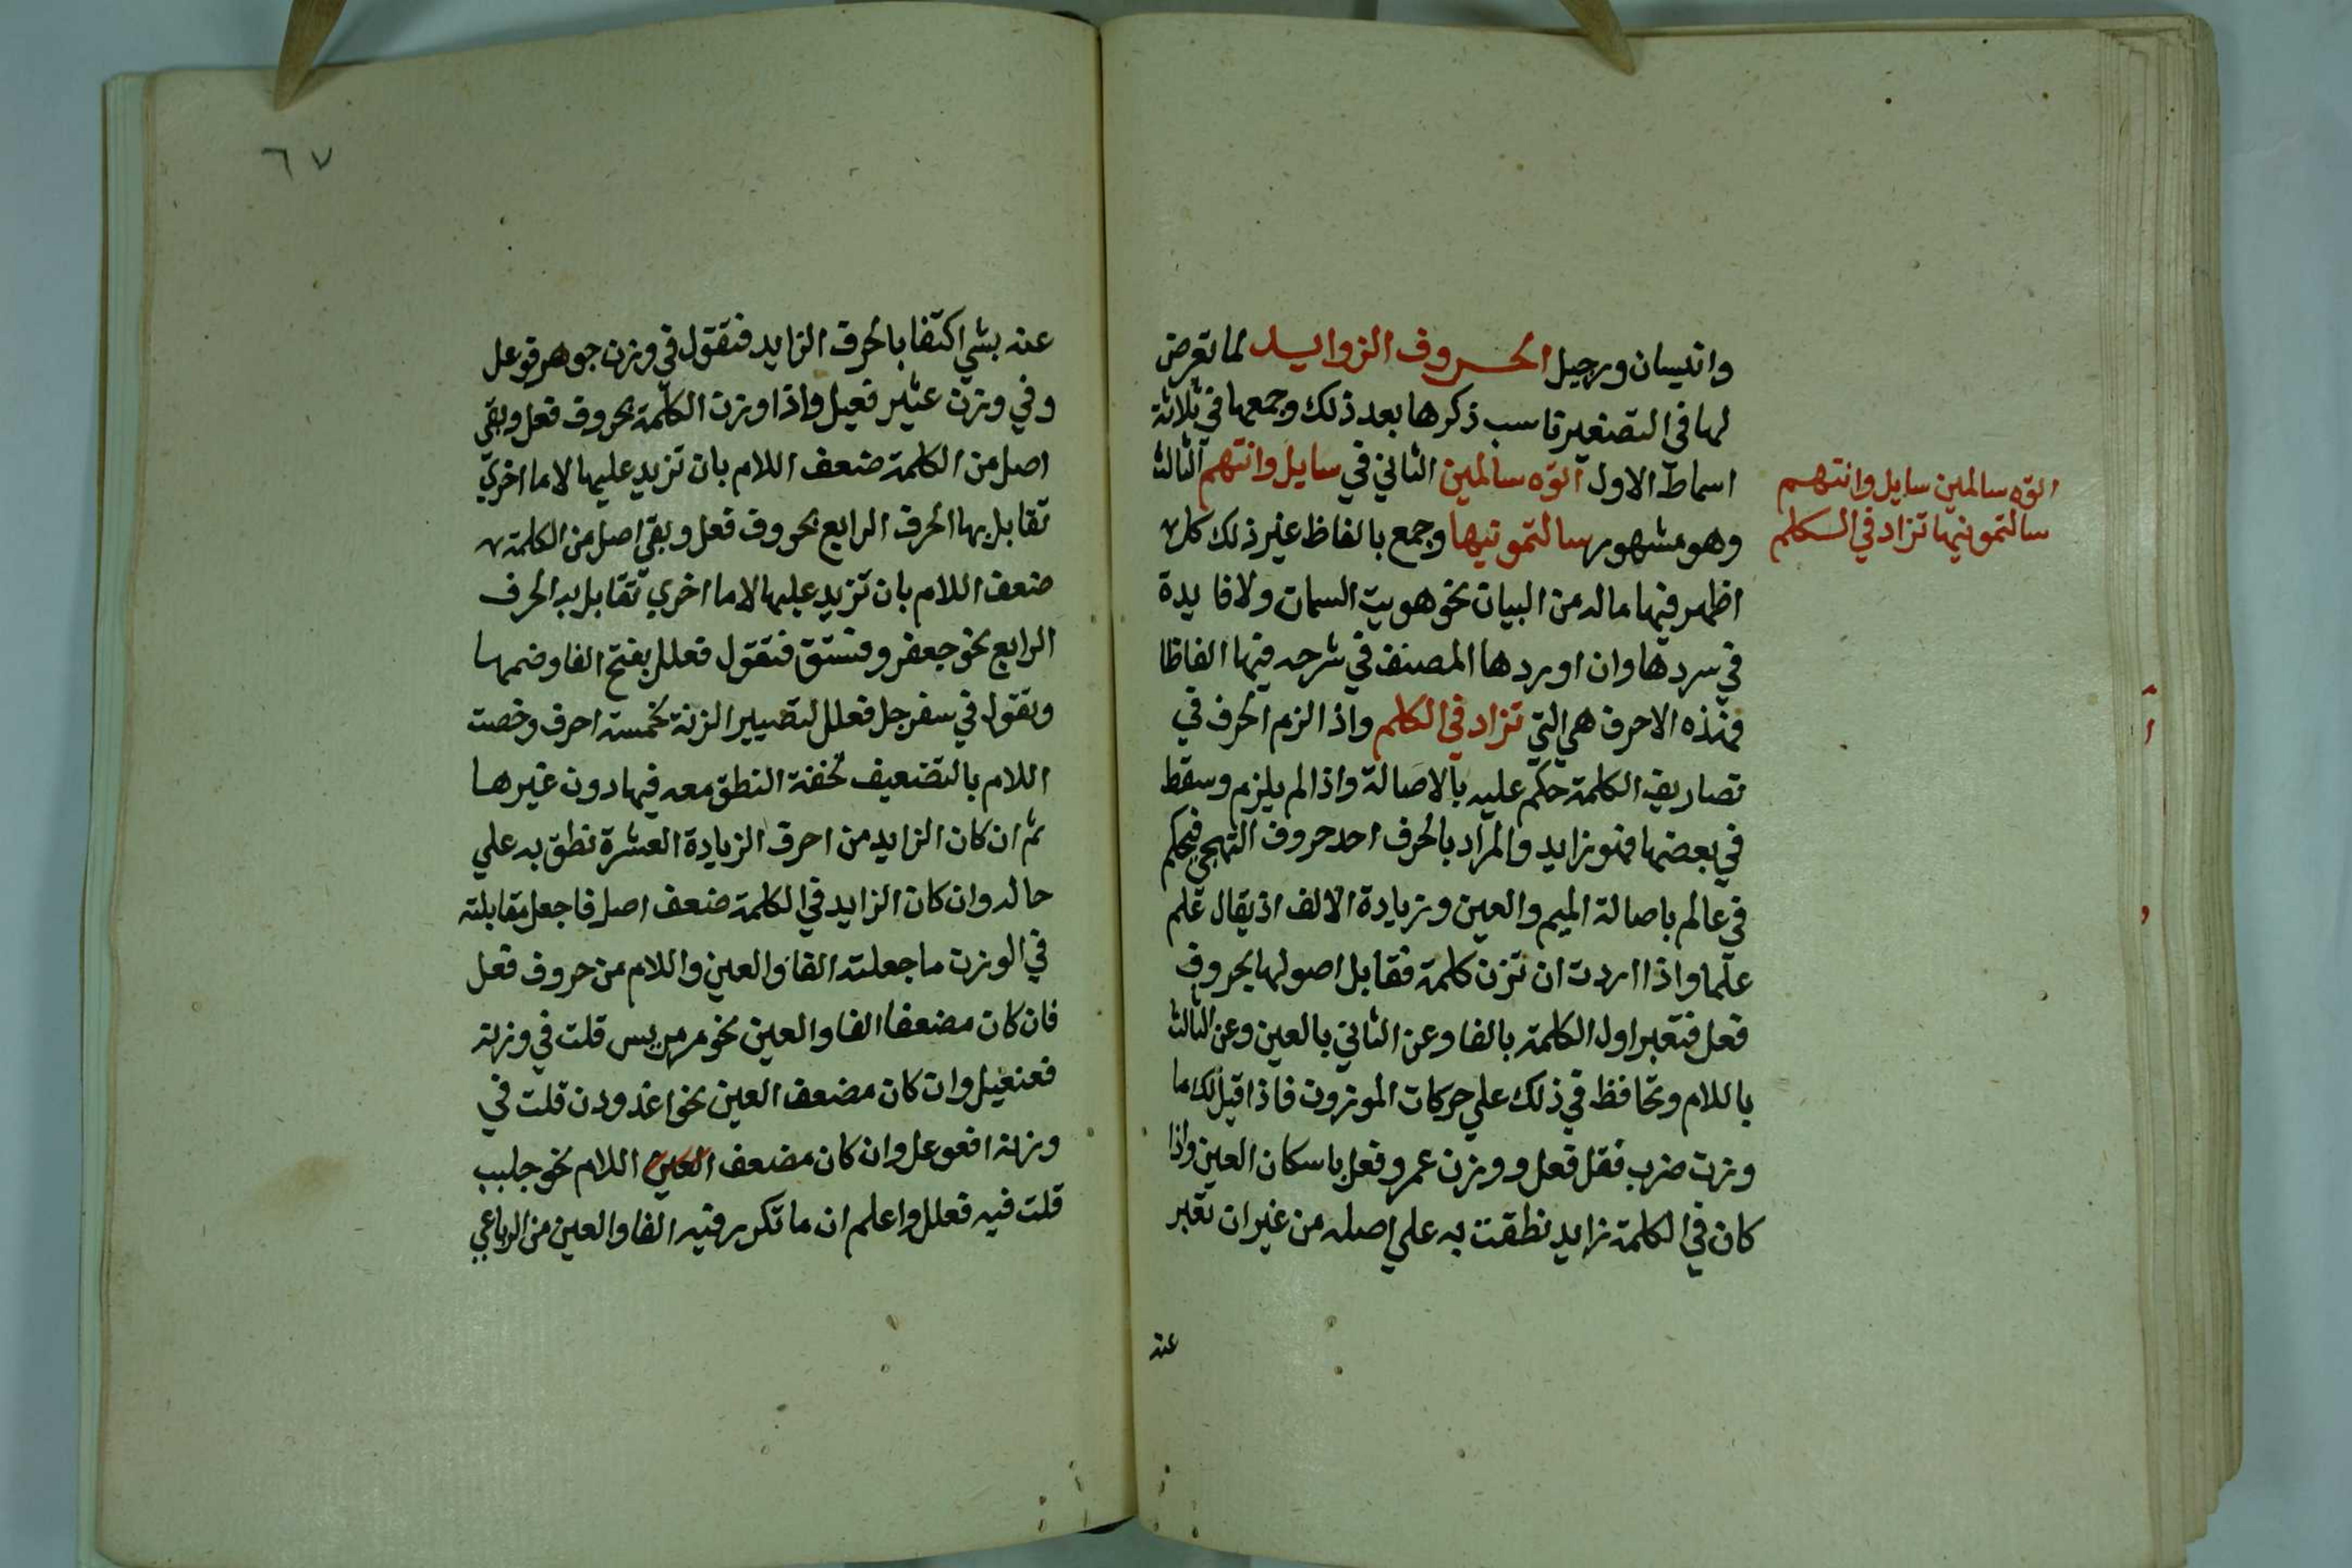 وانيسان ورجيل الحروف الزوايد لما تعرض
لها في التصغير ناسب ذكرها بعد ذلك وجمعها في ثلاثة
اسماط الاول الوه سالمين الثاني في سايل وانتهم الثالث
وهو مشهور سالتمونيها وجمع بالفاظ غير ذلك كل
اظهر فيها ماله من البيان نحو هويت السمان ولا فايدة
في سردها وان اوردها المصنف في شرحه فيها الفاظا
فهذه الاحرف هي التي تزاد في الكلم واذا لزم الحرف في
تصاريف الكلمة حكم عليه بالاصالة واذا لم يلزم وسقط
في بعضها فهو زايد والمراد بالحرف احد حروف التهجي فيحكم
في عالم باصالة الميم والعين وزيادة الالف اذ يقال علم
علما واذا اردت ان تزن كلمة فقابل اصولها بحروف
فعل فتعبر اول الكلمة بالفا وعن الثاني بالعين وعن الثالث
باللام وتحافظ في ذلك علي حركات الموزون فاذا قيل لك ما
وزن ضرب فقل فعل ووزن عمرو فعل باسكان العين واذا
كان في الكلمة زايد نطقت به علي اصله من غير ان تعبر
عنه
الوه سالمين سايل وانتهم
سالتمونيها تزاد في الكلم
٦٧
عنه بشي اكتفا بالحرف الزايد فتقول في وزن جوهر فوعل
وفي وزن عثير فعيل واذا وزنت الكلمة بحروف فعل وبقي
اصل من الكلمة ضعف اللام بان تزيد عليها لاما اخري
تقابل بها الحرف الرابع بحروف فعل وبقي اصل من الكلمة
ضعف اللام بان تزيد عليها لاما اخري تقابل به الحرف
الرابع نحو جعفر وفستق فتقول فعلل بفتح الفا وضمها
وتقول في سفرجل فعلل لتصيير الزنة بخمسة احرف وخصت
اللام بالتضعيف لخفة النطق معه فيها دون غيرها
ثم ان كان الزايد من احرف الزيادة العشرة نطق به علي
حاله وان كان الزايد في الكلمة ضعف اصل فاجعل مقابلته
في الوزن ما جعلته الفا والعين واللام من حروف فعل
فان كان مضعفا الفا والعين نحو مرمريس قلت في وزنة
فعنعيل وان كان مضعف العين نحو اغدودن قلت في
وزنة افعوعل وان كان مضعف العين اللام نحو جلبب
قلت فيه فعلل واعلم ان ما تكرر فيه الفا والعين من الرباعي